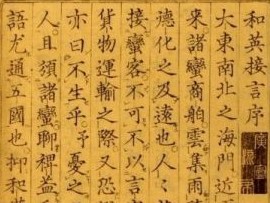 和英接言序
大東南北之海門近
來諸蠻商舶雲集雨
德化之及遠也人々
接蠻客不可不以言
貨物運輸之際又恐
亦曰不生乎予憂之
人且須諸蠻聊裨益
語尤通五國也抑和